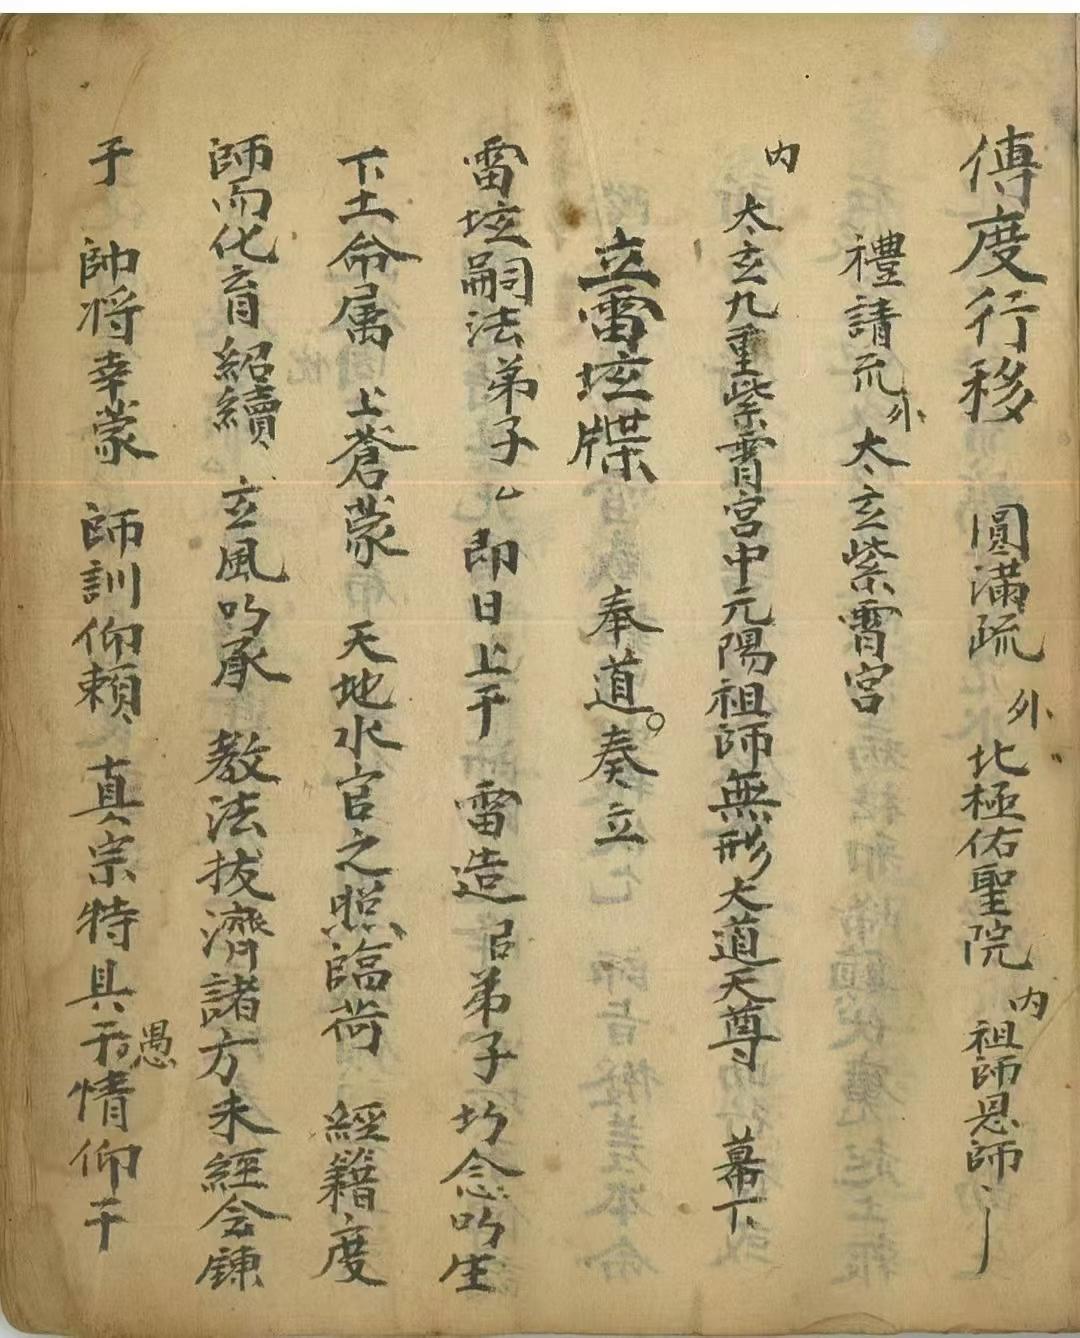 傳度行移 圓滿疏 外 北極佑聖院 內 祖師恩師
禮請疏 外 太玄紫霄宮
內 太玄九重紫霄宮中元陽祖師無形大道天尊 幕下
立雷壇牒 奉道。奏立
雷壇嗣法弟子厶 即日上干 雷造 臣弟子 念 生
下土命属 上蒼蒙 天地水官之照臨荷 經籍度
師而化育紹續 玄風 承 教法拔濟諸方未經会鍊
于 帥将幸蒙 師訓仰賴 真宗特具于愚情仰干